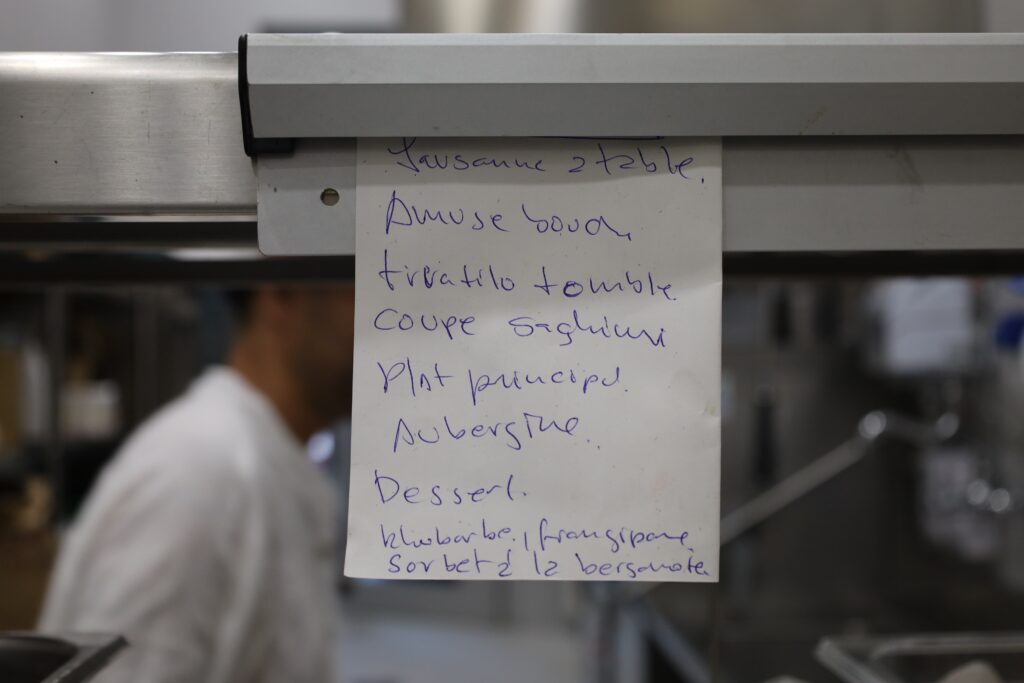 Lausanne à table.
Amuse bouch
tomble
coupe
Plat principal.
Aubergine.
Dessert.
Rhubarbe, frangipane
sorbet à la bergamote